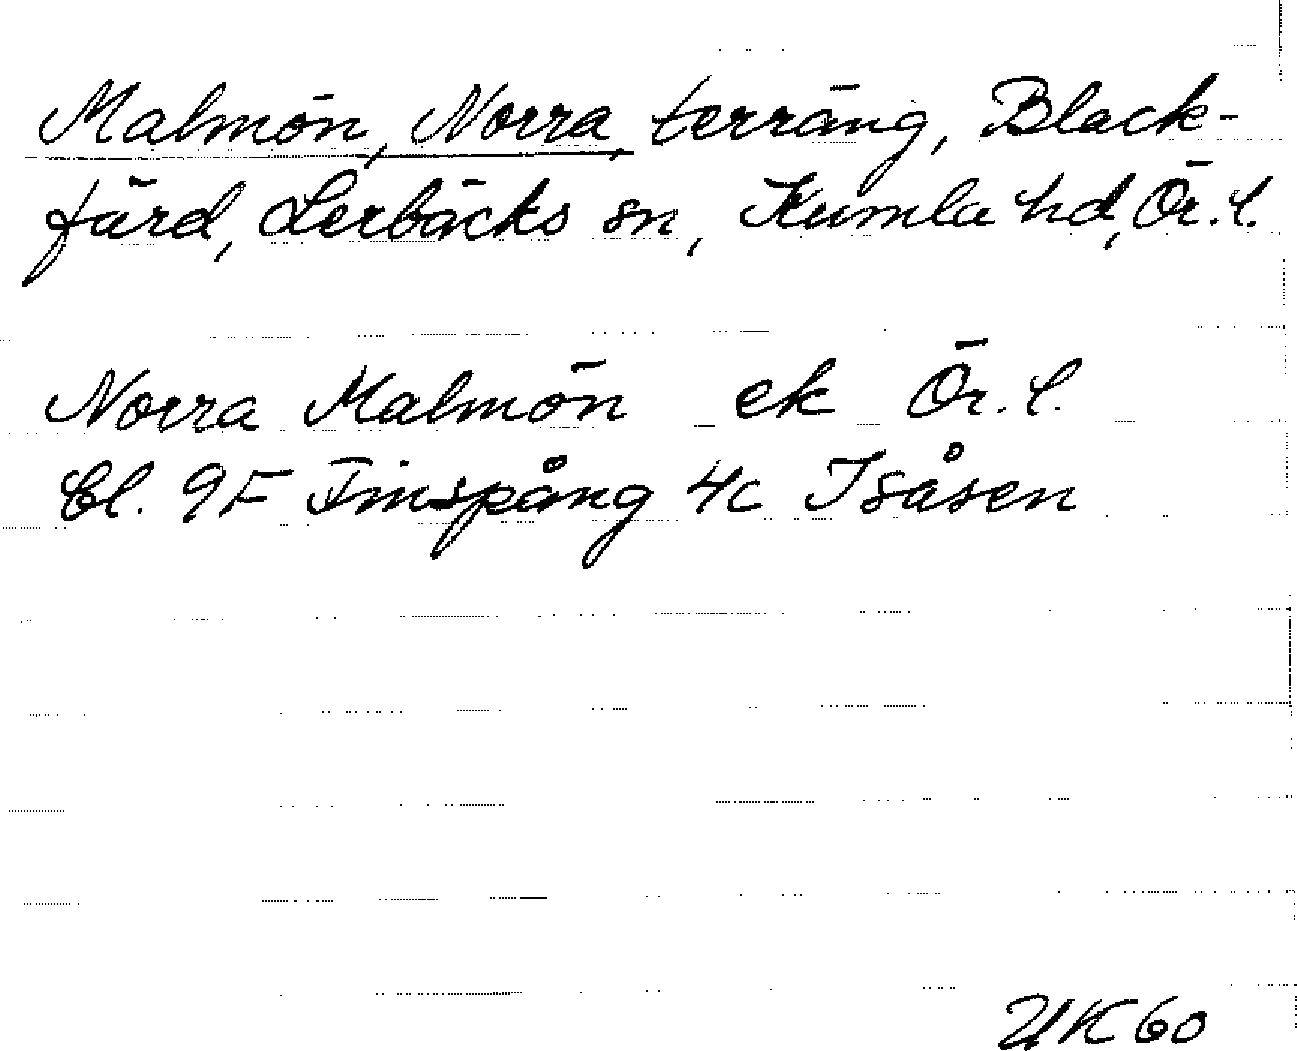 Malmön, Norra, terräng, Black-
färd, Lerbäcks sn, Kumla hd, Ör. l.
Norra Malmön ek Ör. l.
Bl. 9F Finspång 4c Isåsen
UK 60